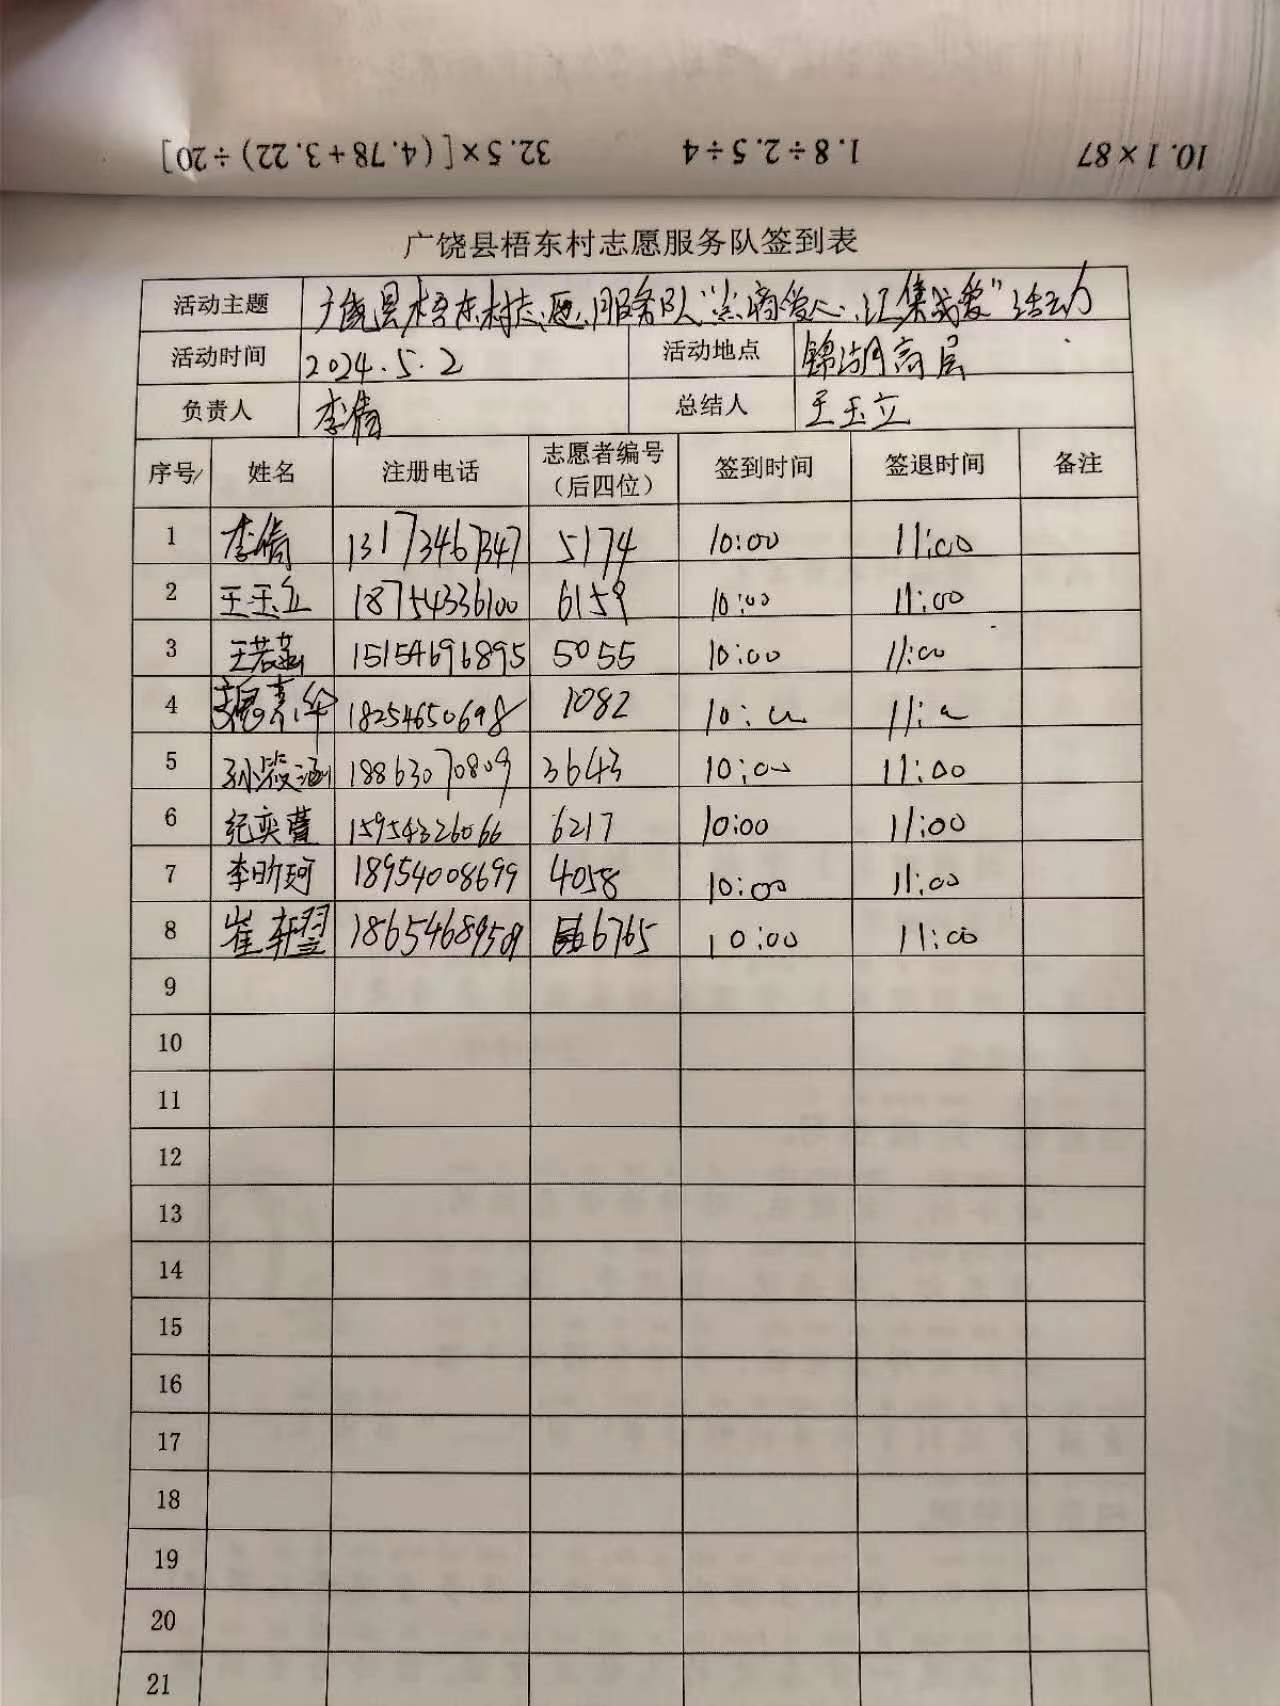 32.5×[(4.78+3.22)÷20] 1.8÷2.5÷4 10.1×87
广饶县梧东村志愿服务队签到表
活动主题 广饶县梧东村志愿服务队“点滴爱心,汇集成爱”活动
活动时间 2024.5.2 活动地点 锦湖高层
负责人 李倩 总结人 王玉立
序号 姓名 注册电话 志愿者编号(后四位) 签到时间 签退时间 备注
1 李倩 13173467347 5174 10:00 11:00
2 王玉立 18754336100 6159 10:00 11:00
3 王若菡 15154696895 5055 10:00 11:00
4 18254650698 1082 10:00 11:00
5 孙筱涵 18863070809 3643 10:00 11:00
6 纪奕萱 15954326066 6217 10:00 11:00
7 李昕珂 18954008699 4058 10:00 11:00
8 崔轩翌 18654689509 6765 10:00 11:00
9
10
11
12
13
14
15
16
17
18
19
20
21